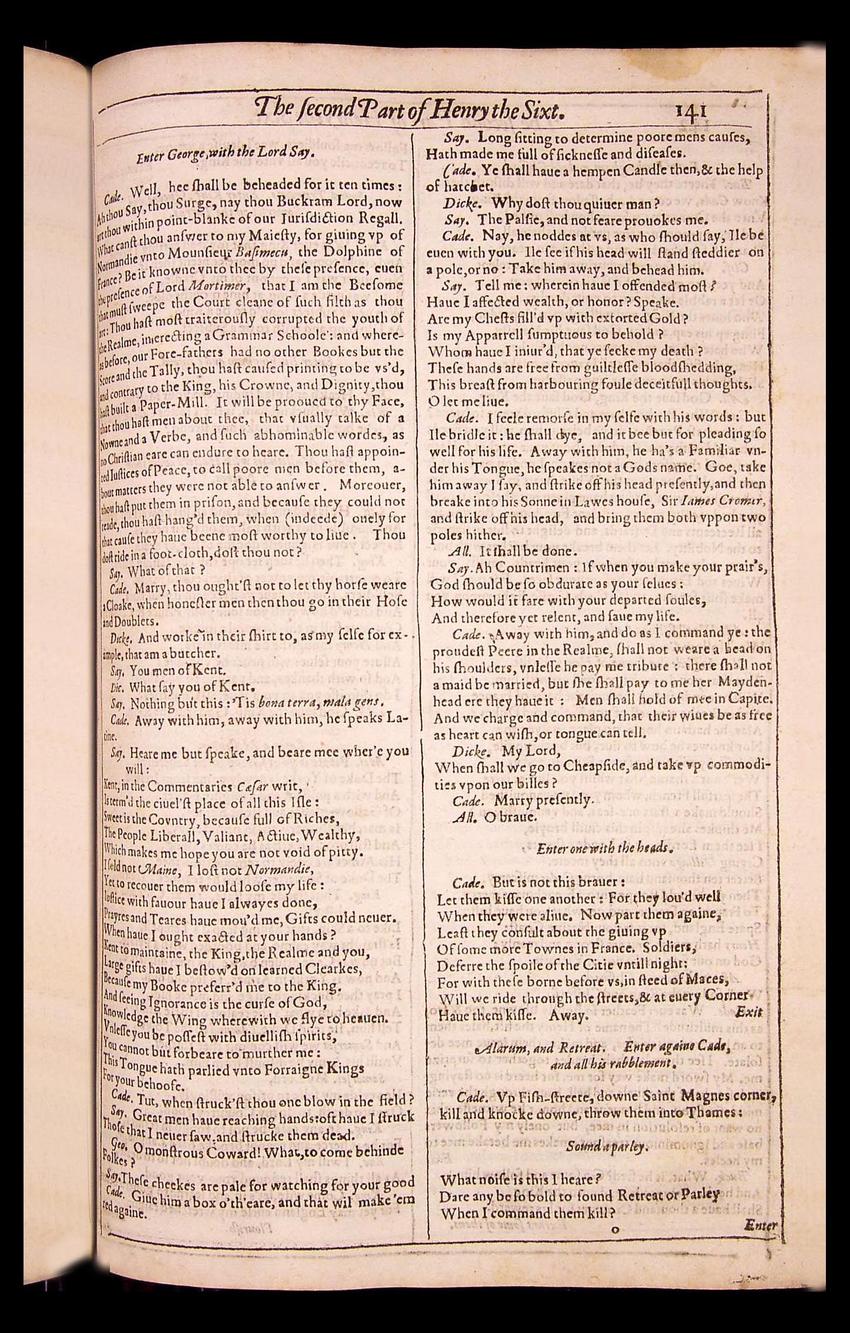 The ſecond Part of Henry the Sixt. 141
Enter George, with the Lord Say.
Cade. Well, hee ſhall be beheaded for it ten times:
Ah thou Say, thou Surge, nay thou Buckram Lord, now
art thou within point-blanke of our Iuriſdiction Regall.
What canſt thou anſwer to my Maieſty, for giuing vp of
Normandie vnto Mounſieur Baſimecu, the Dolphine of
France? Be it knowne vnto thee by theſe preſence, euen
the preſence of Lord Mortimer, that I am the Beeſome
that muſt ſweepe the Court cleane of ſuch filth as thou
art: Thou haſt moſt traiterouſly corrupted the youth of
the Realme, in erecting a Grammar Schoole: and where-
as before, our Fore-fathers had no other Bookes but the
Score and the Tally, thou haſt cauſed printing to be vs'd,
and contrary to the King, his Crowne, and Dignity, thou
haſt built a Paper-Mill. It will be prooued to thy Face,
that thou haſt men about thee, that vſually talke of a
Nowne and a Verbe, and ſuch abhominable wordes, as
no Chriſtian eare can endure to heare. Thou haſt appoin-
ted Iuſtices of Peace, to call poore men before them, a-
bout matters they were not able to anſwer. Moreouer,
thou haſt put them in priſon, and becauſe they could not
reade, thou haſt hang'd them, when (indeede) onely for
that cauſe they haue beene moſt worthy to liue. Thou
doſt ride in a foot-cloth, doſt thou not?
Say. What of that?
Cade. Marry, thou ought'ſt not to let thy horſe weare
a Cloake, when honeſter men then thou go in their Hoſe
and Doublets.
Dicke. And worke in their ſhirt to, as my ſelfe for ex-
ample, that am a butcher.
Say. You men of Kent.
Dic. What ſay you of Kent.
Say. Nothing but this: 'Tis bona terra, mala gens.
Cade. Away with him, away with him, he ſpeaks La-
tine.
Say. Heare me but ſpeake, and beare mee wher'e you
will:
Kent, in the Commentaries Cæſar writ,
Is term'd the ciuel'ſt place of all this Iſle:
Sweet is the Covntry, becauſe full of Riches,
The People Liberall, Valiant, Actiue, Wealthy,
Which makes me hope you are not void of pitty.
I ſold not Maine, I loſt not Normandie,
Yet to recouer them would looſe my life:
Iuſtice with fauour haue I alwayes done,
Prayres and Teares haue mou'd me, Gifts could neuer.
When haue I ought exacted at your hands?
Kent to maintaine, the King, the Realme and you,
Large gifts haue I beſtow'd on learned Clearkes,
Becauſe my Booke preferr'd me to the King.
And ſeeing Ignorance is the curſe of God,
Knowledge the Wing wherewith we flye to heauen.
Vnleſſe you be poſſeſt with diuelliſh ſpirits,
You cannot but forbeare to murther me:
This Tongue hath parlied vnto Forraigne Kings
For your behoofe.
Cade. Tut, when ſtruck'ſt thou one blow in the field?
Say. Great men haue reaching hands: oft haue I ſtruck
Thoſe that I neuer ſaw, and ſtrucke them dead.
Geo. O monſtrous Coward! What, to come behinde
Folkes?
Say. Theſe cheekes are pale for watching for your good
Cade. Giue him a box o'th'eare, and that wil make 'em
red againe.
Say. Long ſitting to determine poore mens cauſes,
Hath made me full of ſickneſſe and diſeaſes.
Cade. Ye ſhall haue a hempen Candle then, & the help
of hatchet.
Dicke. Why doſt thou quiuer man?
Say. The Palſie, and not feare prouokes me.
Cade. Nay, he noddes at vs, as who ſhould ſay, Ile be
euen with you. Ile ſee if his head will ſtand ſteddier on
a pole, or no: Take him away, and behead him.
Say. Tell me: wherein haue I offended moſt?
Haue I affected wealth, or honor? Speake.
Are my Cheſts fill'd vp with extorted Gold?
Is my Apparrell ſumptuous to behold?
Whom haue I iniur'd, that ye ſeeke my death?
Theſe hands are free from guiltleſſe bloodſhedding,
This breaſt from harbouring foule deceitfull thoughts.
O let me liue.
Cade. I feele remorſe in my ſelfe with his words: but
Ile bridle it: he ſhall dye, and it bee but for pleading ſo
well for his life. Away with him, he ha's a Familiar vn-
der his Tongue, he ſpeakes not a Gods name. Goe, take
him away I ſay, and ſtrike off his head preſently, and then
breake into his Sonne in Lawes houſe, Sir Iames Cromer,
and ſtrike off his head, and bring them both vppon two
poles hither.
All. It ſhall be done.
Say. Ah Countrimen: If when you make your prair's,
God ſhould be ſo obdurate as your ſelues:
How would it fare with your departed ſoules,
And therefore yet relent, and ſaue my life.
Cade. Away with him, and do as I command ye: the
proudeſt Peere in the Realme, ſhall not weare a head on
his ſhoulders, vnleſſe he pay me tribute: there ſhall not
a maid be married, but ſhe ſhall pay to me her Mayden-
head ere they haue it: Men ſhall hold of mee in Capite.
And we charge and command, that their wiues be as free
as heart can wiſh, or tongue can tell.
Dicke. My Lord,
When ſhall we go to Cheapſide, and take vp commodi-
ties vpon our billes?
Cade. Marry preſently.
All. O braue.
Enter one with the heads.
Cade. But is not this brauer:
Let them kiſſe one another: For they lou'd well
When they were aliue. Now part them againe,
Leaſt they conſult about the giuing vp
Of ſome more Townes in France. Soldiers,
Deferre the ſpoile of the Citie vntill night:
For with theſe borne before vs, in ſteed of Maces,
Will we ride through the ſtreets, & at euery Corner
Haue them kiſſe. Away. Exit
Alarum, and Retreat. Enter againe Cade,
and all his rabblement.
Cade. Vp Fiſh-ſtreete, downe Saint Magnes corner,
kill and knocke downe, throw them into Thames:
Sound a parley.
What noiſe is this I heare?
Dare any be ſo bold to ſound Retreat or Parley
When I command them kill?
o Enter